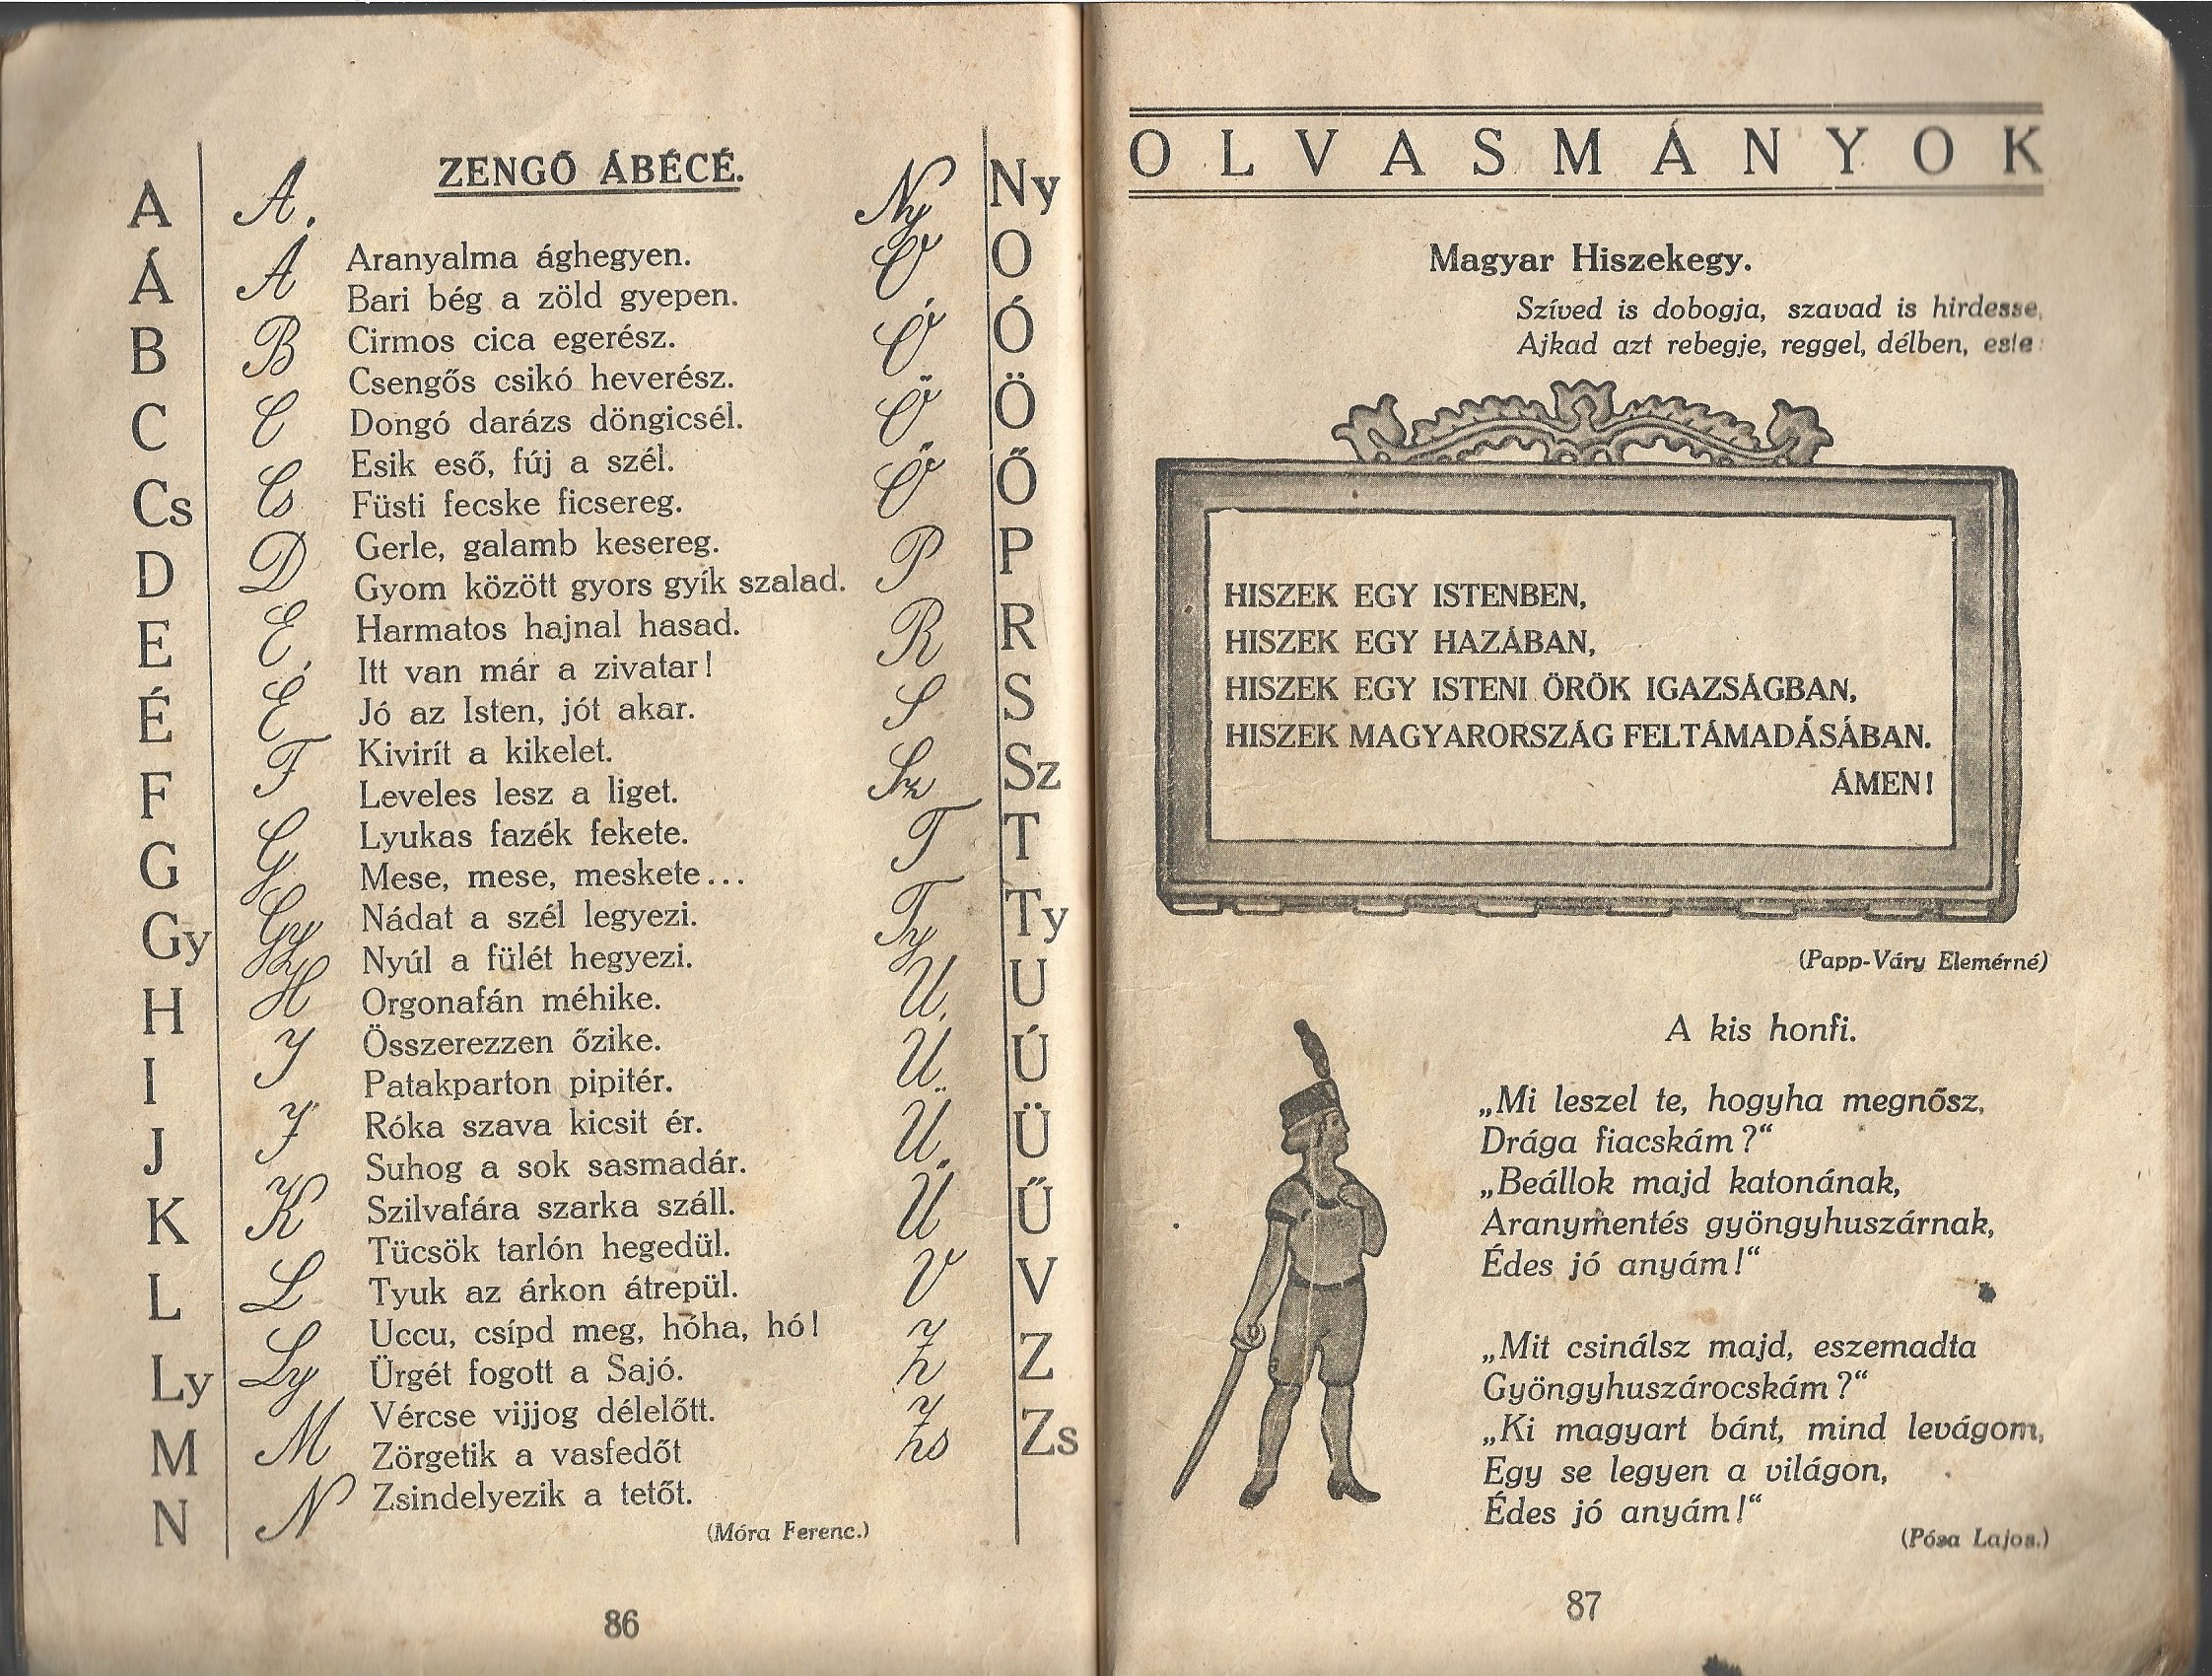 ZENGŐ ÁBÉCÉ.
A
Á
B
C
Cs
D
E
É
F
G
Gy
H
I
J
K
L
Ly
M
N
A
Á
B
C
Cs
D
E
É
F
G
Gy
H
I
J
K
L
Ly
M
N
Aranyalma ághegyen.
Bari bég a zöld gyepen.
Cirmos cica egerész.
Csengős csikó heverész.
Dongó darázs döngicsél.
Esik eső, fúj a szél.
Füsti fecske ficsereg.
Gerle, galamb kesereg.
Gyom között gyors gyík szalad.
Harmatos hajnal hasad.
Itt van már a zivatar!
Jó az Isten, jót akar.
Kivirít a kikelet.
Leveles lesz a liget.
Lyukas fazék fekete.
Mese, mese, meskete...
Nádat a szél legyezi.
Nyúl a fülét hegyezi.
Orgonafán méhike.
Összerezzen őzike.
Patakparton pipitér.
Róka szava kicsit ér.
Suhog a sok sasmadár.
Szilvafára szarka száll.
Tücsök tarlón hegedül.
Tyuk az árkon átrepül.
Uccu, csípd meg, hóha, hó!
Ürgét fogott a Sajó.
Vércse vijjog délelőtt.
Zörgetik a vasfedőt
Zsindelyezik a tetőt.
(Móra Ferenc.)
Ny
O
Ó
Ö
Ő
P
R
S
Sz
T
Ty
U
Ú
Ü
Ű
V
Z
Zs
Ny
O
Ó
Ö
Ő
P
R
S
Sz
T
Ty
U
Ú
Ü
Ű
V
Z
Zs
86
OLVASMÁNYOK
Magyar Hiszekegy.
Szíved is dobogja, szavad is hirdesse,
Ajkad azt rebegje, reggel, délben, este:
HISZEK EGY ISTENBEN,
HISZEK EGY HAZÁBAN,
HISZEK EGY ISTENI ÖRÖK IGAZSÁGBAN,
HISZEK MAGYARORSZÁG FELTÁMADÁSÁBAN.
ÁMEN!
(Papp-Váry Elemérné)
A kis honfi.
„Mi leszel te, hogyha megnősz,
Drága fiacskám?“
„Beállok majd katonának,
Aranymentés gyöngyhuszárnak,
Édes jó anyám!“
„Mit csinálsz majd, eszemadta
Gyöngyhuszárocskám?“
„Ki magyart bánt, mind levágom,
Egy se legyen a világon,
Édes jó anyám!“
(Pósa Lajos.)
87